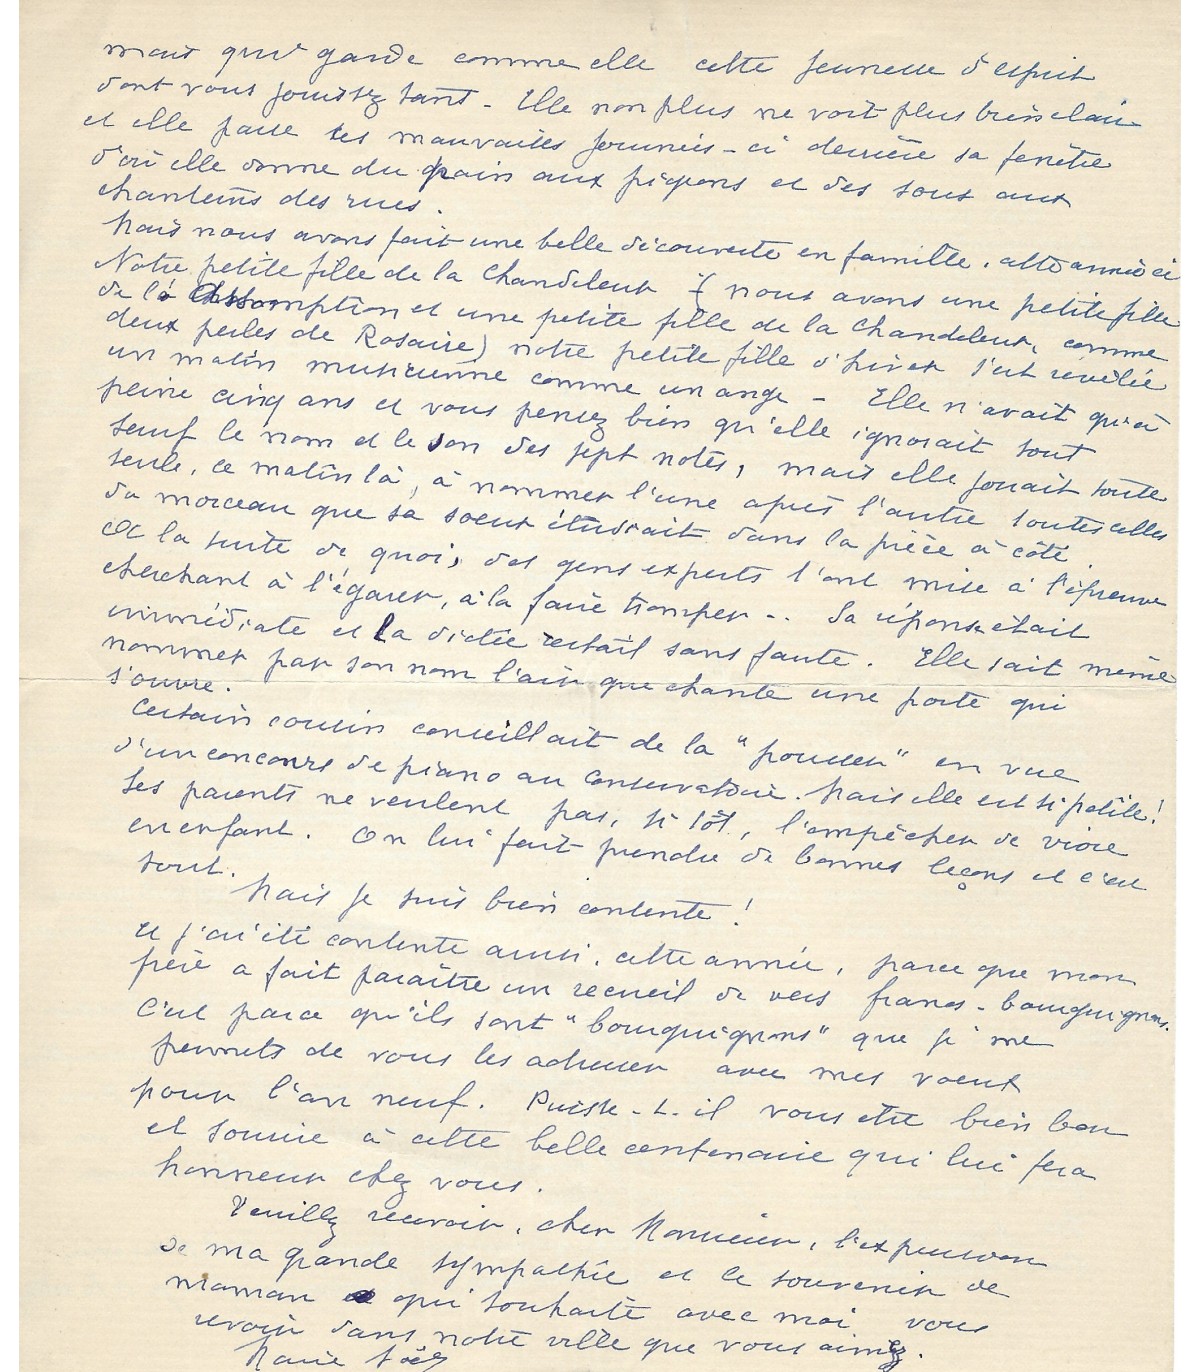 mais qui garde comme elle cette jeunesse d'esprit
dont vous jouissez tant - Elle non plus ne voit plus bien clair
et elle passe ses mauvaises journées-ci derrière sa fenêtre
d'où elle donne du pain aux pigeons et des sous aux
chanteurs des rues.
Mais nous avons fait une belle découverte en famille, cette année ci
Notre petite fille de la Chandeleur (nous avons une petite fille
de l'Assomption et une petite fille de la Chandeleur, comme
deux perles de Rosaire) notre petite fille d'hiver s'est révélée
un matin musicienne comme un ange - Elle n'avait qu'à
peine cinq ans et vous pensez bien qu'elle ignorait tout
sauf le nom et le son des sept notes, mais elle jouait toute
seule, ce matin là, à nommer l'une après l'autre toutes celles
du morceau que sa soeur étudiait dans la pièce à côté.
A la suite de quoi, des gens experts l'ont mise à l'épreuve
cherchant à l'égarer, à la faire tromper .. Sa réponse était
immédiate et la dictée restait sans faute. Elle sait même
nommer par son nom l'air que chante une porte qui
s'ouvre.
Certain cousin conseillait de la "pousser" en vue
d'un concours de piano au Conservatoire. Mais elle est si petite!
Ses parents ne veulent pas, si tôt, l'empêcher de vivre
en enfant. On lui fait prendre de bonnes leçons et c'est
tout.
Mais je suis bien contente!
Et j'ai été contente aussi, cette année, parce que mon
frère a fait paraître un recueil de vers francs-bourguignons.
C'est parce qu'ils sont "bourguignons" que je me
permets de vous les adresser avec mes voeux
pour l'an neuf. Puisse-t-il vous être bien bon
et sourire à cette belle centenaire qui lui fera
honneur chez vous.
Veuillez recevoir, cher Monsieur, l'expression
de ma grande sympathie et le souvenir de
maman qui souhaite avec moi vous
revoir dans notre ville que vous aimez.
Marie Noël